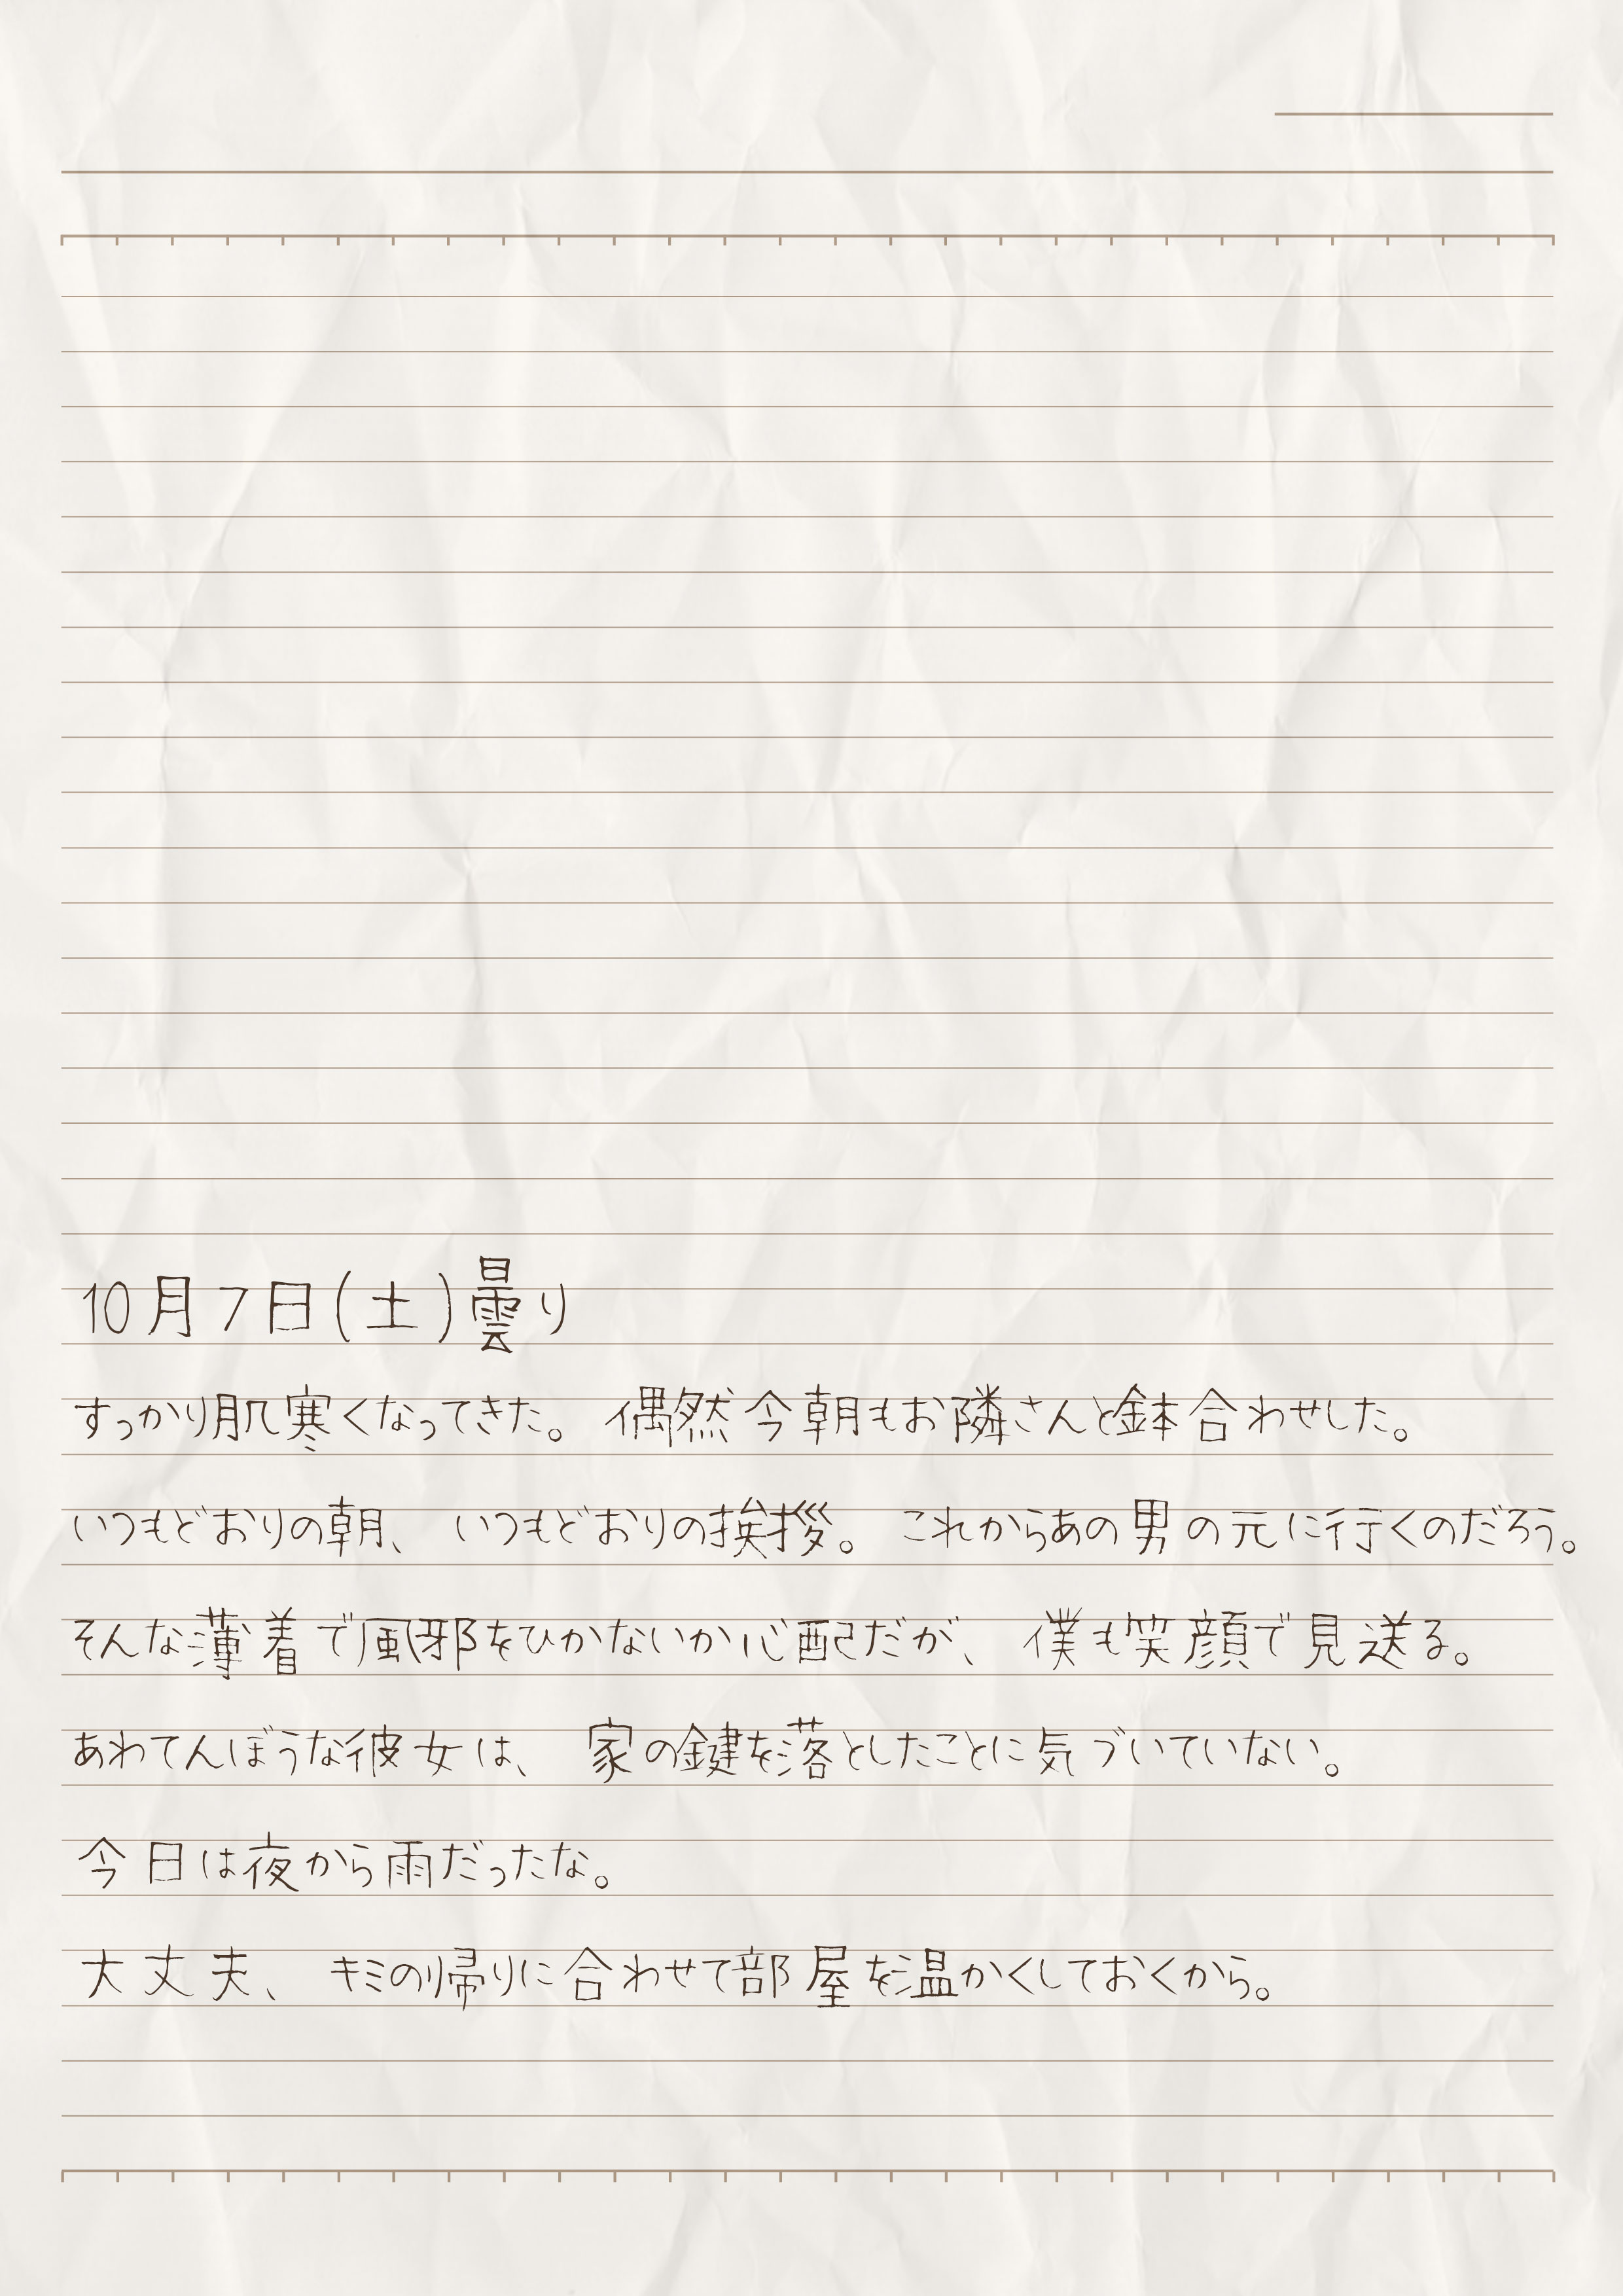 10月7日(土)曇り
すっかり肌寒くなってきた。 偶然今朝もお隣さんと鉢合わせした。
いつもどおりの朝、 いつもどおりの挨拶。 これからあの男の元に行くのだろう。
そんな薄着で風邪をひかないか心配だが、 僕も笑顔で見送る。
あわてんぼうな彼女は、 家の鍵を落としたことに気づいていない。
今日は夜から雨だったな。
大丈夫、 キミの帰りに合わせて部屋を温かくしておくから。